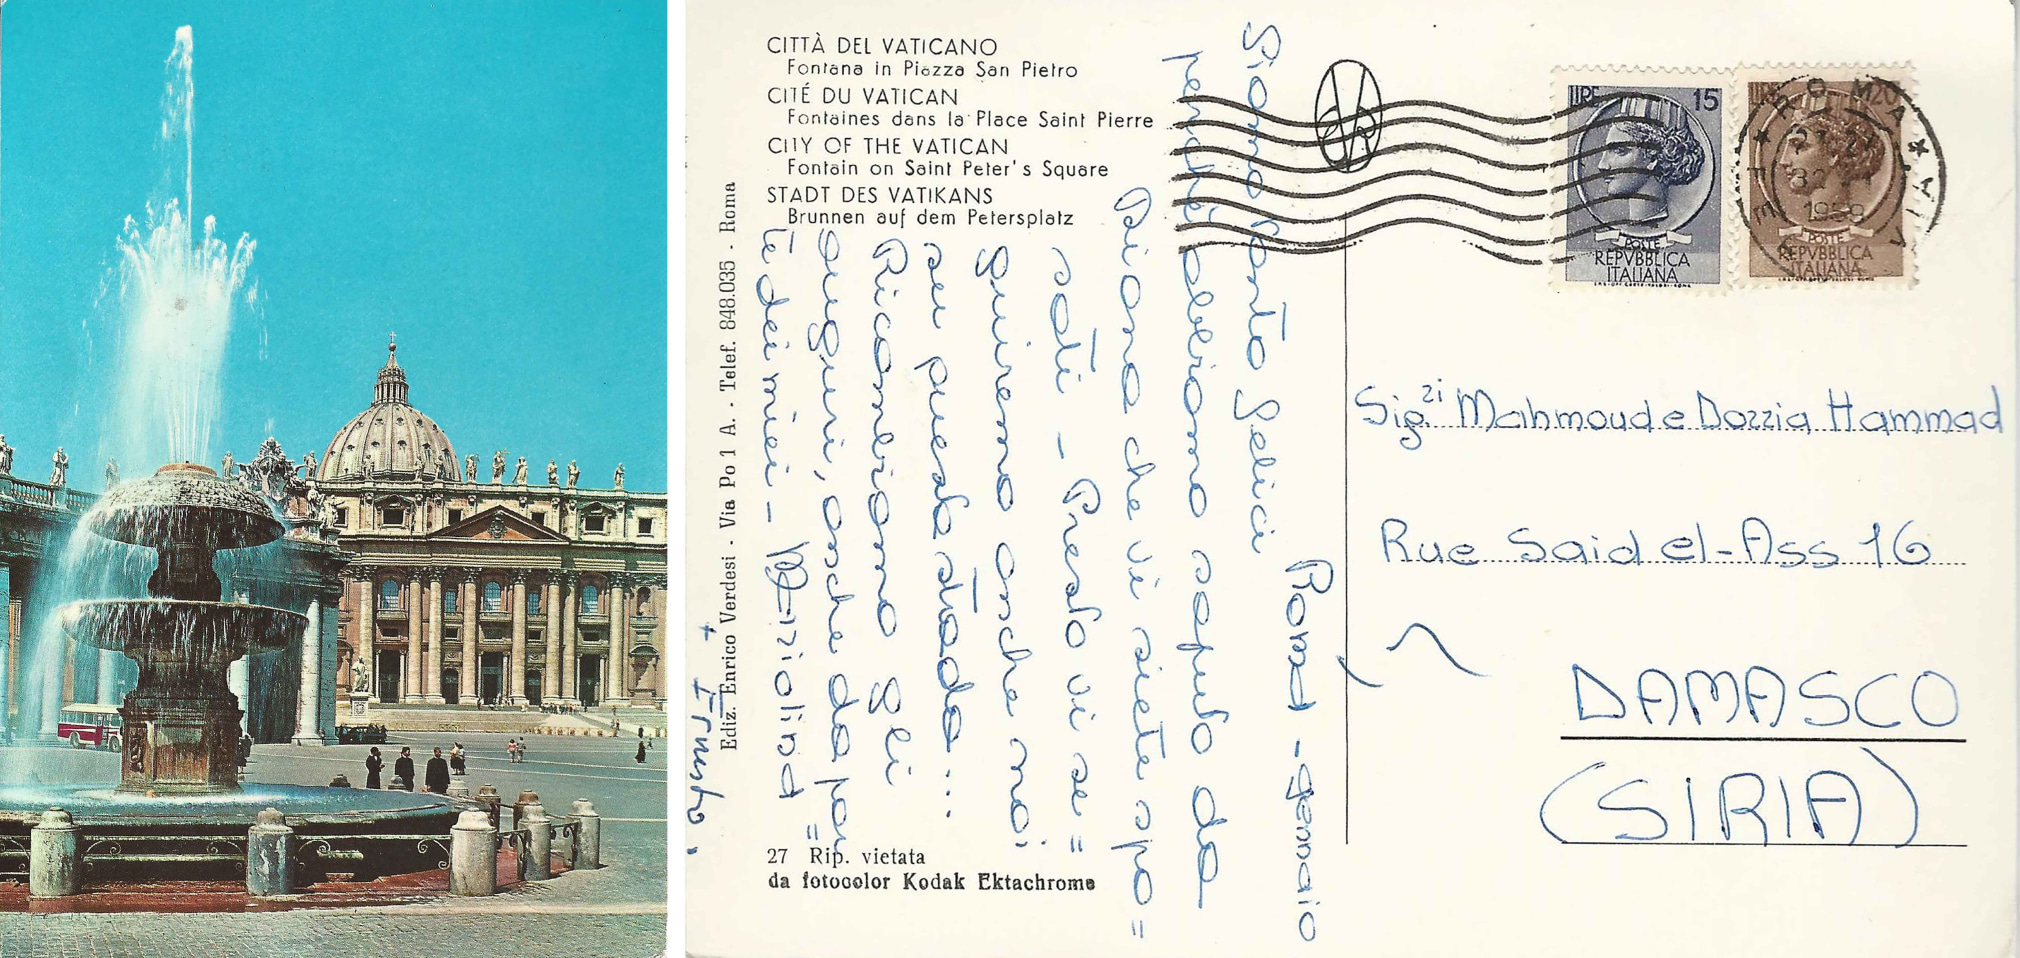 CITTÀ DEL VATICANO
Fontana in Piazza San Pietro
CITÉ DU VATICAN
Fontaines dans la Place Saint Pierre
CITY OF THE VATICAN
Fontain on Saint Peter's Square
STADT DES VATIKANS
Brunnen auf dem Petersplatz
Ediz. Enrico Verdesi - Via Po 1 A. - Telef. 848.035 - Roma
27 Rip. vietata
da fotocolor Kodak Ektachrome
Roma - gennaio
Siamo tanto felici
perché abbiamo saputo da
Diana che vi siete spo=
sati - Presto vi se=
guiremo anche noi
per questa strada...
Ricambiamo gli
auguri, anche da par=
te dei miei -
LIRE 15
POSTE
REPVBBLICA
ITALIANA
LIRE 20
POSTE
REPVBBLICA
ITALIANA
ROMA
1959
Sig.ri Mahmoud e Dazzia Hammad
Rue Said el-Ass 16
DAMASCO
(SIRIA)